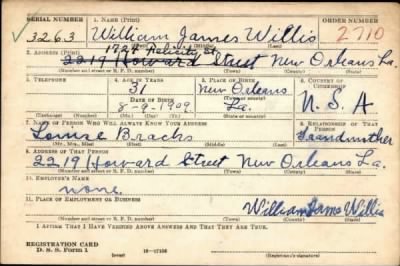 SERIAL NUMBER 1. NAME (Print) ORDER NUMBER
3263 William James Willis 2710
(First) (Middle) (Last)
1724 Felicity St
2. ADDRESS (Print)
2219 Howard Street New Orleans La.
(Number and street or R. F. D. number) (Town) (County) (State)
3. TELEPHONE 4. AGE IN YEARS 5. PLACE OF BIRTH 6. COUNTRY OF CITIZENSHIP
31 New Orleans
DATE OF BIRTH
8-9-1909 La. U. S. A
(Exchange) (Number) (Mo.) (Day) (Yr.) (State or country)
7. NAME OF PERSON WHO WILL ALWAYS KNOW YOUR ADDRESS 8. RELATIONSHIP OF THAT PERSON
Louise Bracks Grandmother
(Mr., Mrs., Miss) (First) (Middle) (Last)
9. ADDRESS OF THAT PERSON
2219 Howard Street New Orleans La.
(Number and street or R. F. D. number) (Town) (County) (State)
10. EMPLOYER'S NAME
none
11. PLACE OF EMPLOYMENT OR BUSINESS
William James Willis
(Number and street or R. F. D. number) (Town) (County) (State)
I AFFIRM THAT I HAVE VERIFIED ABOVE ANSWERS AND THAT THEY ARE TRUE.
REGISTRATION CARD
D. S. S. Form 1 16-17105 (Registrant's signature)